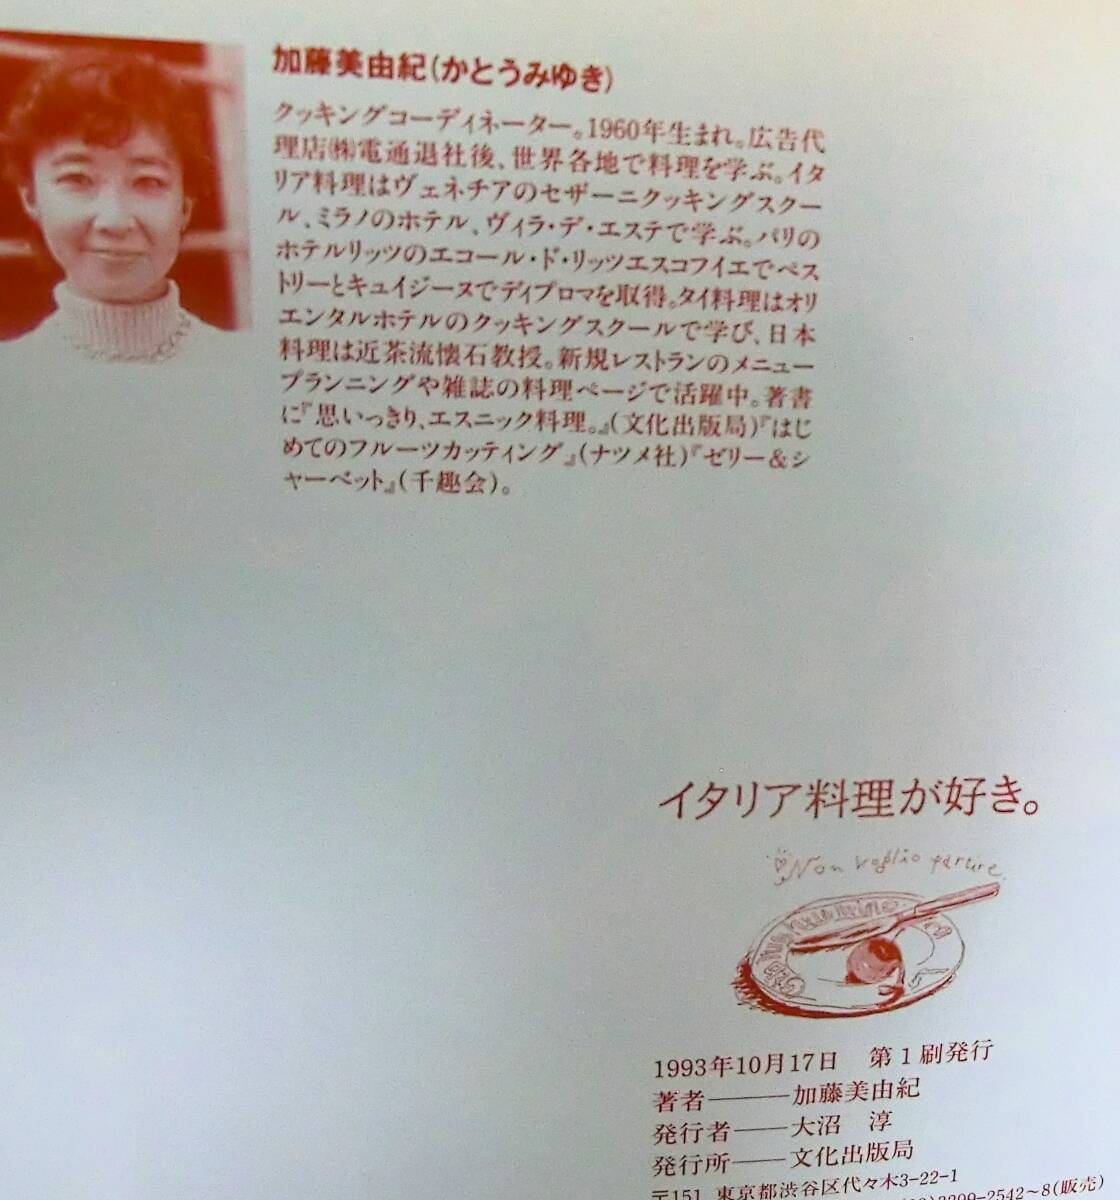 加藤美由紀(かとうみゆき)
クッキングコーディネーター。1960年生まれ。広告代
理店㈱電通退社後、世界各地で料理を学ぶ。イタ
リア料理はヴェネチアのセザーニクッキングスクー
ル、ミラノのホテル、ヴィラ・デ・エステで学ぶ。パリの
ホテルリッツのエコール・ド・リッツエスコフィエでペス
トリーとキュイジーヌでディプロマを取得。タイ料理はオリ
エンタルホテルのクッキングスクールで学び、日本
料理は近茶流懐石教授。新規レストランのメニュー
プランニングや雑誌の料理ページで活躍中。著書
に『思いっきり、エスニック料理。』(文化出版局)『はじ
めてのフルーツカッティング』(ナツメ社)『ゼリー＆シ
ャーベット』(千趣会)。
イタリア料理が好き。
Non voglio partire.
1993年10月17日 第1刷発行
著者――加藤美由紀
発行者――大沼 淳
発行所――文化出版局
〒151 東京都渋谷区代々木3-22-1
3299-2542〜8(販売)